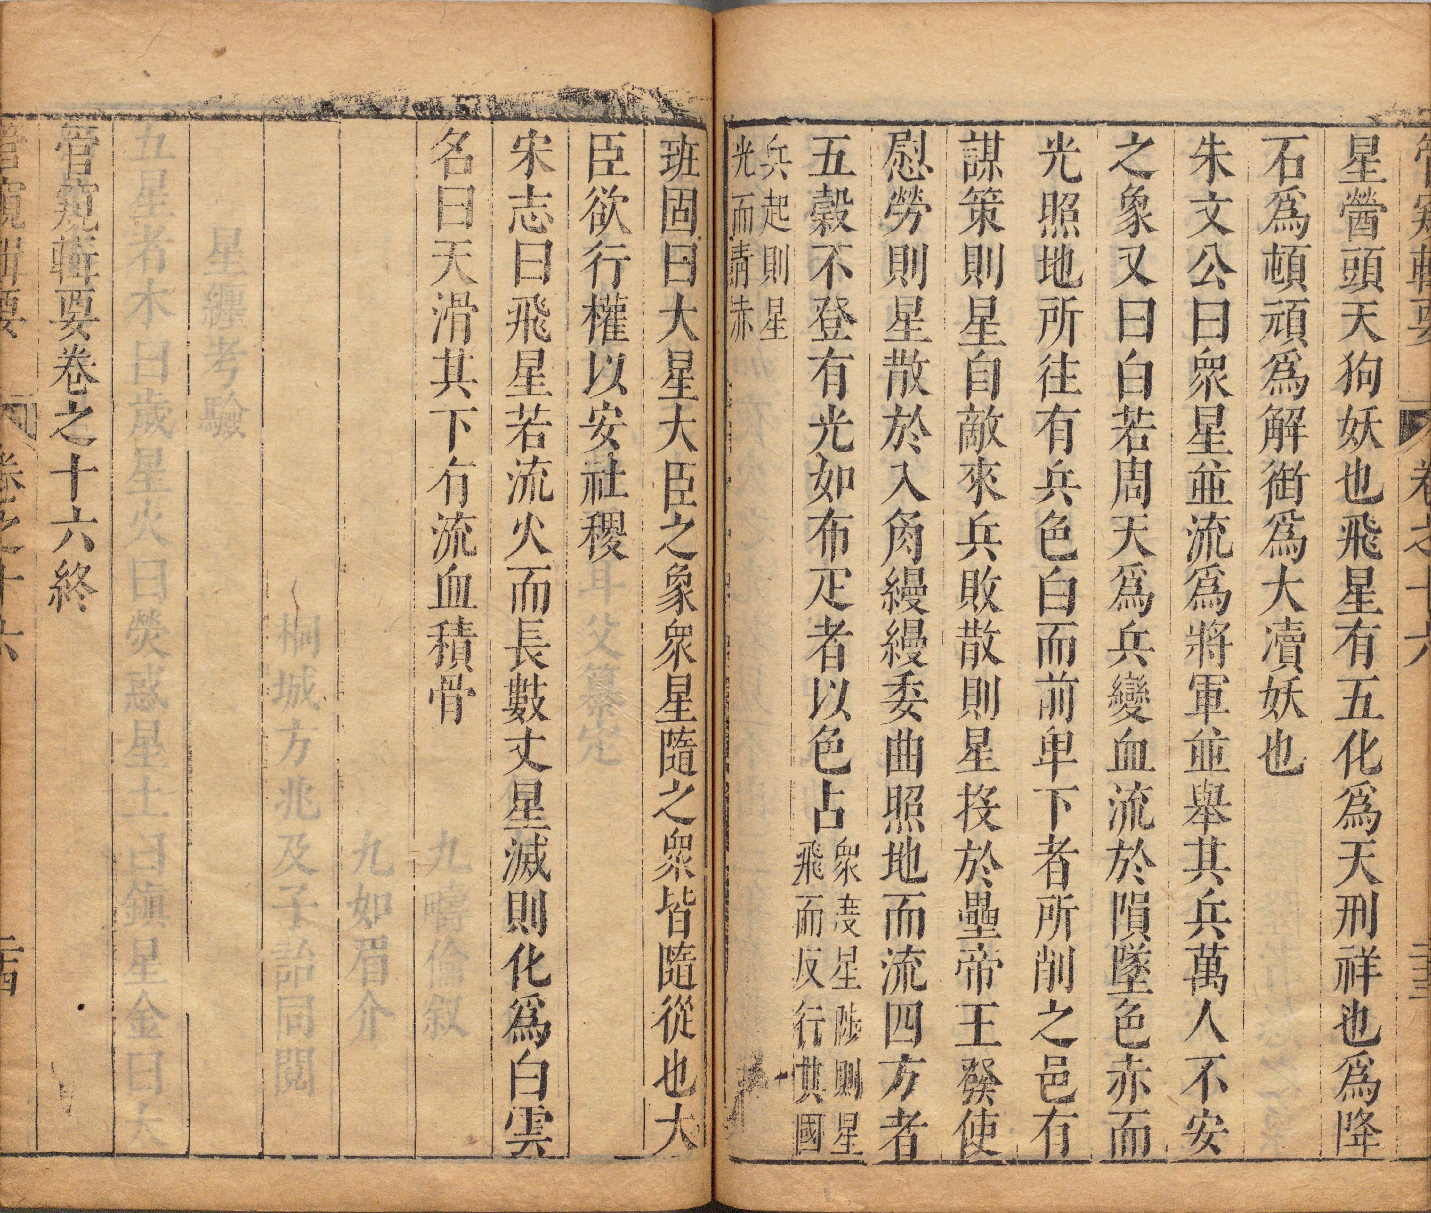 管窺輯要
卷之十六
星營頭天狗妖也飛星有五化爲天刑祥也爲降
石爲頓頑爲解衜爲大瀆妖也
朱文公曰衆星並流爲將軍並舉其兵萬人不安
之象又曰白若周天爲兵變血流於隕墜色赤而
光照地所往有兵色白而前卑下者所削之邑有
謀策則星自敵來兵敗散則星投於壘帝王發使
慰勞則星散於入角縵縵委曲照地而流四方者
五穀不登有光如布疋者以色占
衆
星陟則星
飛而反行其國
兵起則星
光而靑赤
班固曰大星大臣之象衆星隨之衆皆隨從也大
臣欲行權以安社稷
宋志曰飛星若流火而長數丈星滅則化爲白雲
名曰天滑其下有流血積骨
管窺輯要卷之十六終
管窺輯要
卷之十六
二十四